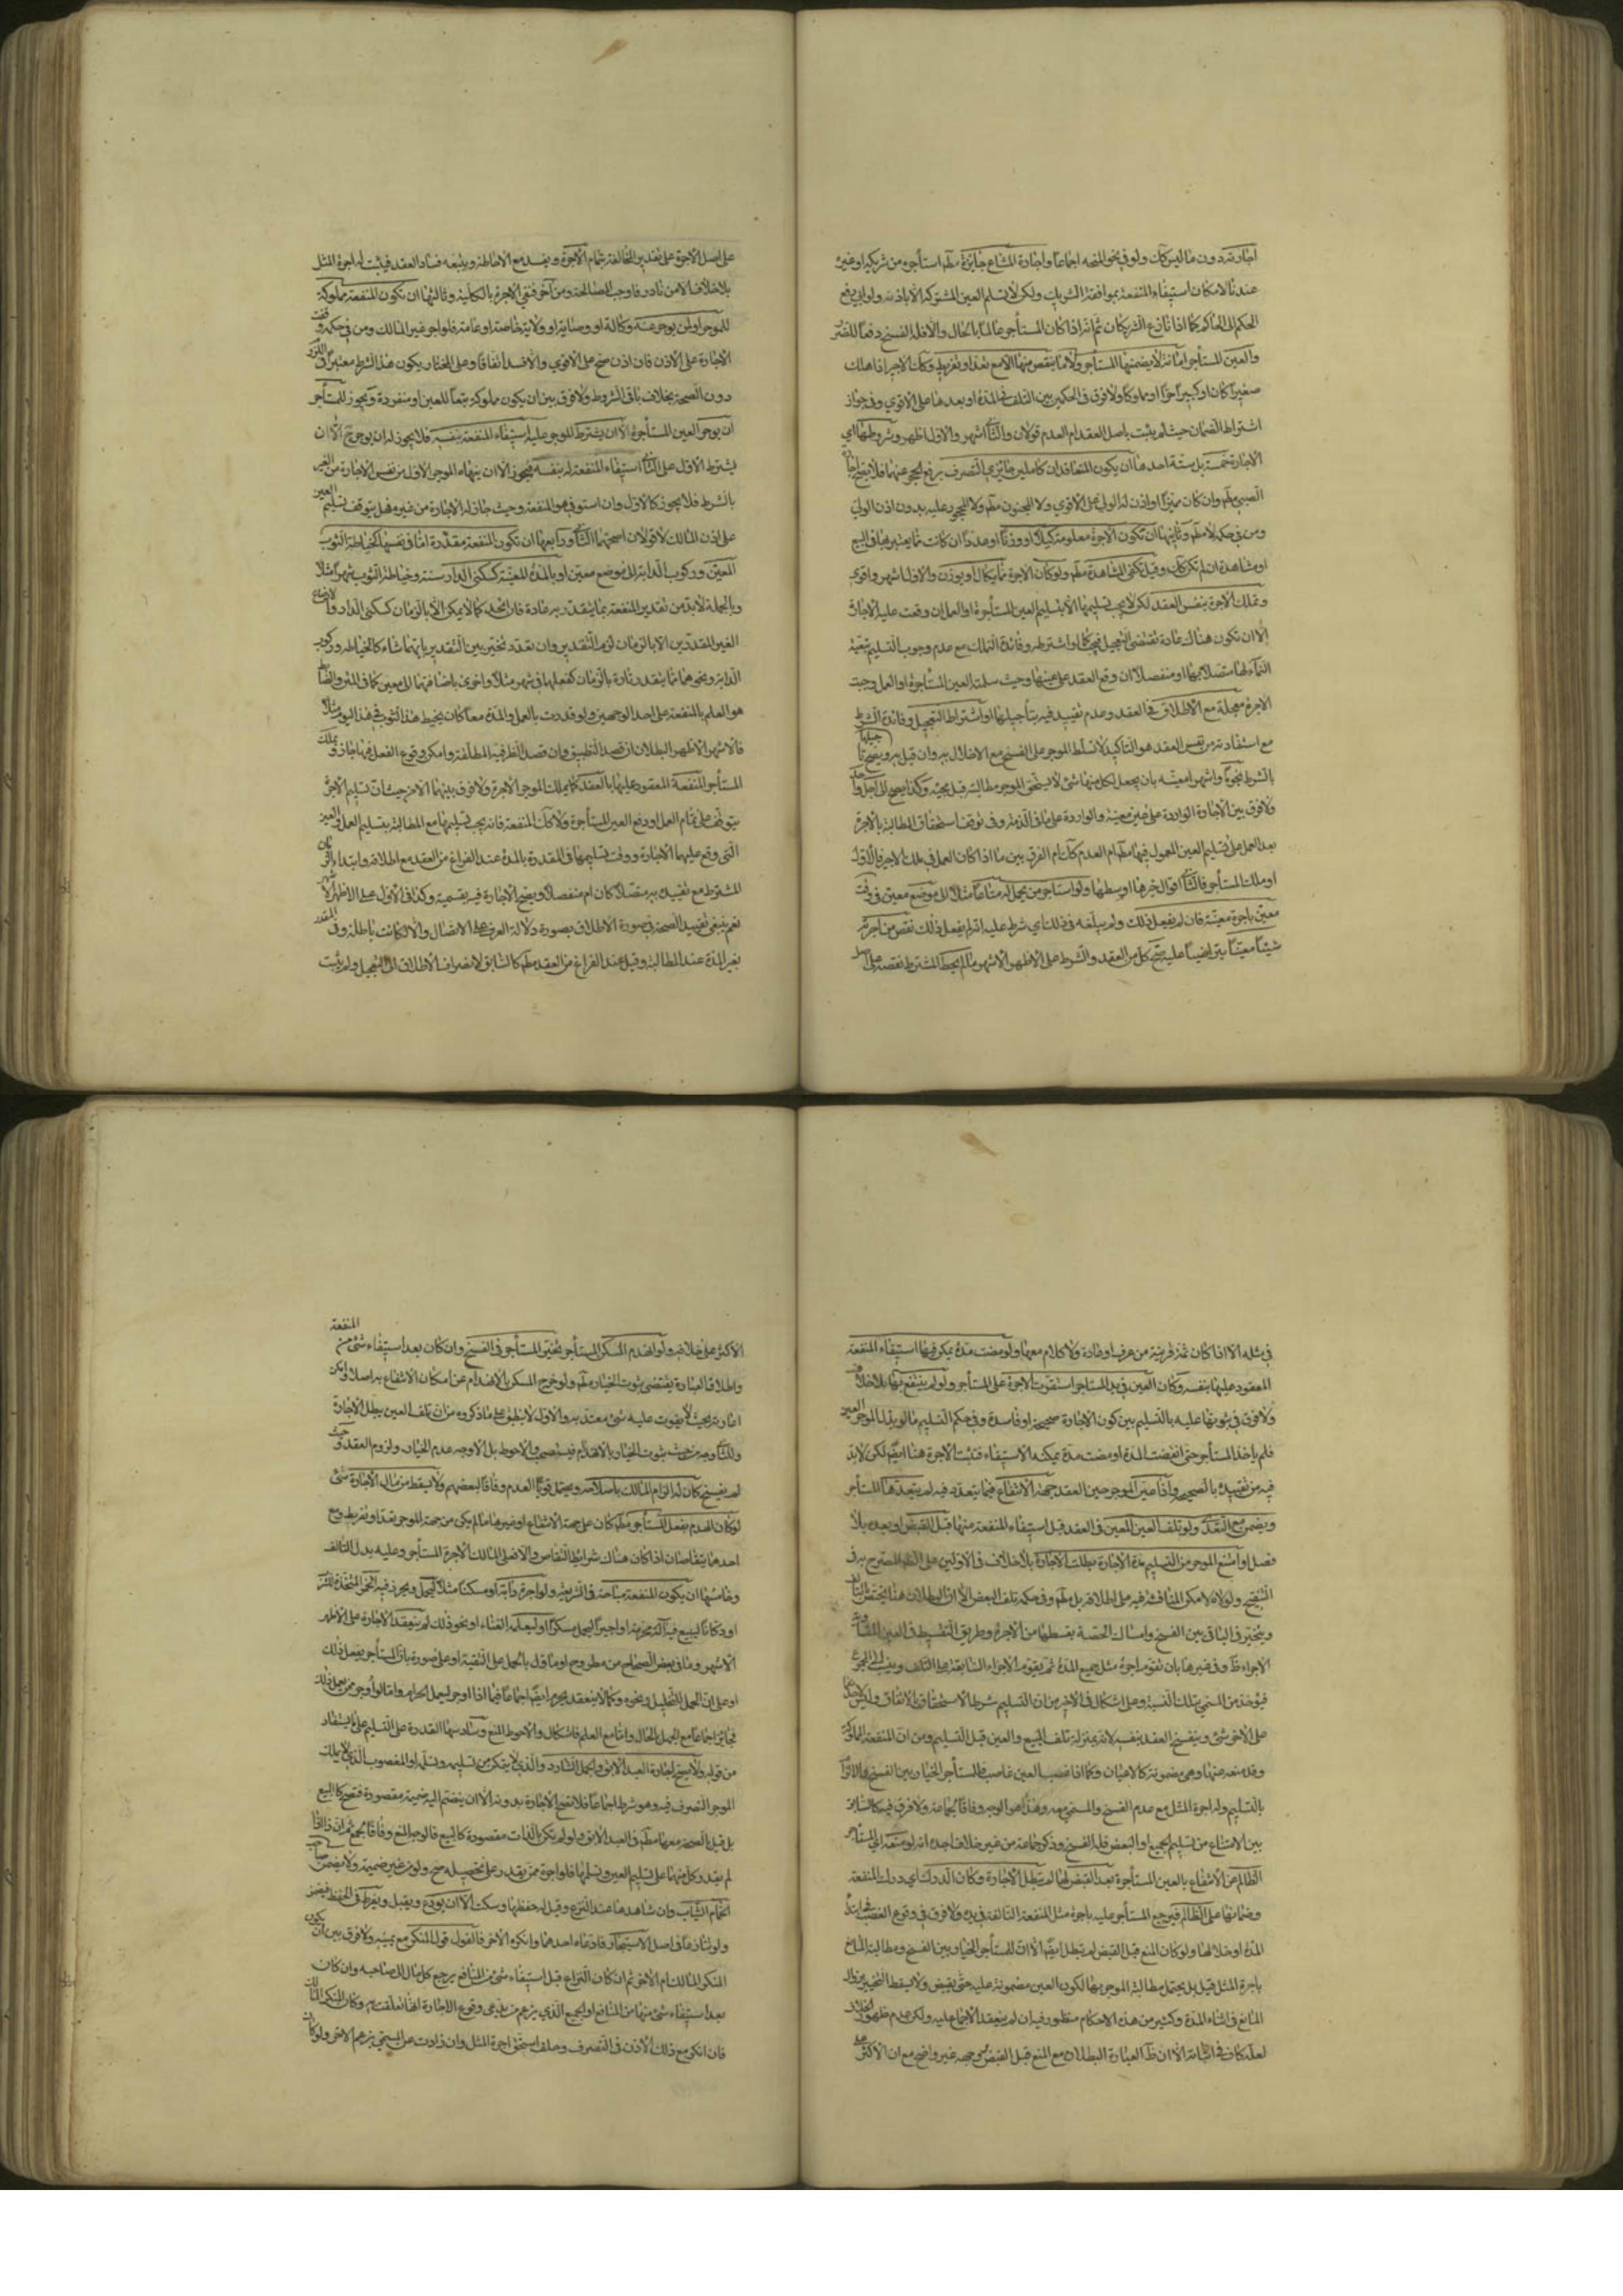 اجارته دون ما ليس كك ولو في نحو المنحه اجماعا واجارة المشاع جايزة مطم استأجره من شريكه او غيره
عندنا لامكان استيفاء المنفعة بموافقة الشريك ولكن لا يسلم العين المشتركة الا باذنه ولو ابى رفع
الحكم الى الحاكم كما اذا تنازع الشريكان ثم انه اذا كان المستأجر عالما بالحال والا فله الفسخ دفعا للضرر
والعين المستأجر امانة لا يضمنها المستأجر ولا ما ينقص منها الا مع تعد او تفريط وكك الاجير اذا هلك
صغيرا كان او كبيرا حرا او مملوكا ولا فرق في الحكمين بين التلف في المدة او بعدها على الاقوي وفي جواز
اشتراط الضمان حيث لم يثبت باصل العقد ام العدم قولان والثاني اشهر والاول اظهر وشروطها اي
الاجارة خمسة بل ستة احدها ان يكون المتعاقدان كاملين جايزي التصرف برفع الحجر عنهما فلا يصح اجارة
الصبي مطم وان كان مميزا او اذن له الولي على الاقوي ولا المجنون مطم ولا المحجور عليه بدون اذن الولي
ومن في حكمه لا مطم وثانيها ان تكون الاجرة معلومة كيلا او وزنا او عددا ان كانت مما يعتبر بها في البيع
او مشاهدة ان لم تكن كك وقيل تكفي المشاهدة مطم ولو كان الاجرة مما يكال او يوزن والاول اشهر واقوي
وتملك الاجرة بنفس العقد لكن لا يجب تسليمها الا بتسليم العين المستأجرة او العمل ان وقعت عليه الاجارة
الا ان تكون هناك عادة تقتضي التعجيل فيجب او اشترطه وفائدة التملك مع عدم وجوب التسليم تبعية
النماء لها متصلا بها او منفصلا ان وقع العقد على عينها وحيث سلمت العين المستأجرة او العمل وجبت
الاجرة معجلة مع الاطلاق في العقد وعدم تقييد فيه بتأجيلها او اشتراط التعجيل وفائدة الشرط
مع استفادته من نفس العقد هو التأكيد لا تسلط الموجر على الفسخ مع الاخلال به وان قيل به ويصح تأجيلها
بالشرط نجوما واشهرا معينة بان يجعل لكل منها شئ لا يستحق الموجر مطالبته قبل محله وكذا يصح الى اجل واحد
ولا فرق بين الاجارة الواردة على عين معينة والواردة على ما في الذمة وفي توقف استحقاق المطالبة بالاجرة
بعد العمل على تسليم العين المعمول فيها مطم ام العدم كك ام الفرق بين ما اذا كان العمل في ملك الاجير فالاول
او ملك المستأجر فالثاني اقوال خيرها اوسطها ولو استاجر من يحمل له متاعا مثلا الى موضع معين في وقت
معين باجرة معينة فان لم يفعل ذلك ولم يبلغه في ذلك اي شرط عليه انه لم يفعل ذلك نقص من اجرته
شيئا معينا يتراضيا عليه صح كل من العقد والشرط على الاظهر الاشهر ما لم يحط المشترط نقصه على اصل
على اصل الاجرة على تقدير المخالفة تمام الاجرة ويفسد مع الاحاطة ويتبعه فساد العقد فيثبت له اجرة المثل
بلا خلاف الا من نادر فاوجب المصالحة ومن آخر فنفي الاجرة بالكلية وثالثها ان تكون المنفعة مملوكة
للموجر او لمن يوجر عنه وكالة او وصاية او ولاية خاصة او عامة فلو اجر غير المالك ومن في حكمه وقفت
الاجارة على الاذن فان اذن صح على الاقوي والا فسد اتفاقا وعلى المختار يكون هذا الشرط معتبرا في اللزوم
دون الصحة بخلاف باقي الشروط ولا فرق بين ان يكون مملوكة تبعا للعين او منفردة ويجوز للمستأجر
ان يوجر العين المستأجرة الا ان يشترط الموجر عليه استيفاء المنفعة بنفسه فلا يجوز له ان يوجر ح الا ان
يشترط الاول على الثاني استيفاء المنفعة له بنفسه فيجوز الا ان ينهاه الموجر الاول من نفس الاجارة من الغير
بالشرط فلا يجوز كالاول وان استوفى هو المنفعة وحيث جاز له الاجارة من غيره فهل يتوقف تسليم العين
على اذن المالك لا قولان اصحهما الثاني ورابعها ان تكون المنفعة مقدرة اما في نفسها كخياطة الثوب
المعين وركوب الدابة الى موضع معين او بالمدة المعينة كسكنى الدار سنة وخياطة الثوب شهرا مثلا
وبالجملة لا بد من تقدير المنفعة بما يتقدر به عادة فان اتحد كما لا يمكن الا بالزمان كسكنى الدار والارضاع
الغير المقدرين الا بالزمان لزم التقدير وان تعدد تخير بين التقدير بايهما شاء كالخياطة وركوب
الدابة ونحوهما مما يتقدر تارة بالزمان كفعلها في شهر مثلا واخرى باضافتها الى معين كما في المتن والضابط
هو العلم بالمنفعة على احد الوجهين ولو قدرت بالعمل والمدة معا كان يخيط هذا الثوب في هذا اليوم مثلا
فالاشهر الاظهر البطلان ان قصد التطبيق وان قصد الظرفية المطلقة وامكن وقوع الفعل فيها جاز وتملك
المستأجر المنفعة المعقود عليها بالعقد كما يملك الموجر الاجرة ولا فرق بينهما الا من حيث ان تسليم الاجرة
يتوقف على تمام العمل او دفع العين المستأجرة ولا كك المنفعة فانه يجب تسليمها مع المطالبة بتسليم العمل والعين
التي وقع عليها الاجارة ووقت تسليمها في المقدرة بالمدة عند الفراغ من العقد مع اطلاقه وابتداء الزمان
المشترط مع تقييده به متصلا كان ام منفصلا ويصح الاجارة فيه بقسميه وكذا في الاول على الاظهر الاشهر
نعم ينبغي تقييد الصحة في صورة الاطلاق بصورة دلالة العرف على الاتصال والا لكانت باطلة وفي المقدرة
بغير المدة عند المطالبة وقيل عند الفراغ من العقد مطم كالسابق لانصراف الاطلاق الى التعجيل ولم يثبت
في مثله الا اذا كان ثمة قرينة من عرف او عادة ولا كلام معها ولو مضت مدة يمكن فيها استيفاء المنفعة
المعقود عليها بنفسه وكان العين في يد المستاجر استقرت الاجرة على المستأجر ولو لم ينتفع بها بلا خلاف
ولا فرق في ثبوتها عليه بالتسليم بين كون الاجارة صحيحة او فاسدة وفي حكم التسليم ما لو بذل الموجر العين
فلم ياخذ المستأجر حتى انقضت المدة او مضت مدة يمكنه الاستيفاء فتثبت الاجرة هنا ايضا لكن لا بد
فيه من تقييده بالصحيحة واذا عين الموجر حين العقد جهة الانتفاع فيما يتعدد فيه لم يتعدها المستأجر
ويضمن مع التعدي ولو تلف العين المعين في العقد قبل استيفاء المنفعة منها قبل القبض او بعده بلا
فصل او امتنع الموجر من التسليم مدة الاجارة بطلت الاجارة بلا خلاف في الاولين على الظاهر المصرح به في
التنقيح ولولاه لامكن المناقشة فيه على اطلاقه بل مطم وفي حكمه تلف البعض الا ان البطلان هنا يختص بالتالف
ويتخير في الباقي بين الفسخ وامساك الحصة بقسطها من الاجرة وطريق التقسيط في العين المتساوية
الاجزاء ظ وفي غيرها بان تقوم اجرة مثل جميع المدة ثم يقوم الاجزاء السابقة على التلف وينسب الى المجموع
فيؤخذ من المسمى بتلك النسبة وعلى اشكال في الاخير من ان التسليم شرط الاستحقاق بالاتفاق وليس لاحدهما
على الاخر شئ وينفسخ العقد بنفسه لانه بمنزلة تلف المبيع والعين قبل التسليم ومن ان المنفعة المملوكة
وقد منعه عنها وهي مضمونة كالاعيان وكما اذا غصب العين غاصب فللمستأجر الخيار بين الفسخ والالتزام
بالتسليم وله اجرة المثل مع عدم الفسخ والمسمى معه وهذا هو الوجه وفاقا لجماعة ولا فرق فيه كالسابق
بين الامتناع من تسليم الجميع او البعض فله الفسخ وذكر جماعة من غير خلاف اجده انه لو منعه اي المستأجر
الظالم عن الانتفاع بالعين المستأجرة بعد القبض لها لم تبطل الاجارة وكان الدرك اي درك المنفعة
وضمانها على الظالم فيرجع المستأجر عليه باجرة مثل المنفعة التالفة في يده ولا فرق في وقوع الغصب في ابتداء
المدة او خلالها ولو كان المنع قبل القبض لم تبطل ايضا الا ان للمستأجر الخيار بين الفسخ ومطالبة المانع
باجرة المثل قيل بل يحتمل مطالبة الموجر بها لكون العين مضمونة عليه حتى يقبض ولا يسقط التخيير بزوال
المانع في اثناء المدة وكثير من هذه الاحكام منظور فيه ان لم ينعقد الاجماع عليه ولكن عدم ظهور الخلاف
لعله كاف في اثباته الا ان ظ العبارة البطلان مع المنع قبل القبض ووجهه غير واضح مع ان الاكثر على
الاكثر على خلافه ولو انهدم المسكن المستأجر تخير المستأجر في الفسخ وان كان بعد استيفاء شئ من المنفعة
واطلاق العبارة يقتضي ثبوت الخيار مطم ولو خرج المسكن بالانهدام عن امكان الانتفاع به اصلا وامكن
اعادته بحيث لا يفوت عليه شئ معتد به والاول لا ينطبق على ما ذكروه من ان تلف العين يبطل الاجارة
وللثاني وجه من حيث ثبوت الخيار بالانهدام فيستصحب والاحوط بل الاوجه عدم الخيار ولزوم العقد وحيث
لم يفسخ كان له الزام المالك باصلاحه ويحتمل قويا العدم وفاقا لبعضهم ولا يسقط من مال الاجارة شئ
لو كان الهدم بفعل المستأجر مطم كان على جهة الانتفاع او غيرها ما لم يكن من جهة الموجر بتعد او تفريط ومع
احدهما يتقاصان اذا كان هناك شرائط التقاص والا فعلى المالك الاجرة المستأجر وعليه بدل التالف
وخامسها ان يكون المنفعة مباحة في الشريعة ولو اجره دابة او مسكنا مثلا ليحمل ويحرز فيه الخمر المتخذة للشرب
او دكانا ليبيع فيه آلة محرمة او اجيرا ليحمل مسكرا او ليعلمه الغناء او نحو ذلك لم ينعقد الاجارة على الاظهر
الاشهر وما في بعض الصحاح من مطروح او ماول بالحمل على التقية او على صورة بان المستأجر يفعل ذلك
او على ان الحمل للتخليل ونحوه وكما لا ينعقد يحرم ايضا اجماعا فيما اذا اوجر ليعمل الحرام واما لو أوجر ممن يعمل ذلك
فجائز اجماعا مع الجهل بالحال واما مع العلم فاشكال والاحوط المنع وسادسها القدرة على التسليم على ما يستفاد
من قوله ولا يصح اجارة العبد الآبق والجمل الشارد والذي لا يتمكن من تسليمه وتسلمه او المغصوب الذي لا يملك
الموجر التصرف فيه وهو شرط اجماعا فلا تصح الاجارة بدونه الا ان ينضم اليه ضميمة مقصودة فتصح كالبيع
بل قيل بالصحة معها مطم في العبد الآبق ولو لم تكن بالذات مقصودة كالبيع فالوجه المنع وفاقا لجمع ثم ان ذا اذا
لم يقدر كل منهما على تسليم العين وتسلمها فلو اجره ممن يقدر على تحصيله صح ولو من غير ضميمة ولا يضمن صاحب
الحمام الثياب وان شاهدها عند النزع وقيل له حفظها وسكت الا ان يودع ويقبل ويفرط في الحفظ فيضمن
ولو تنازعا في اصل الاستيجار فادعاه احدهما وانكره الاخر فالقول قول المنكر مع يمينه ولا فرق بين ان يكون
المنكر المالك ام الاخر ثم ان كان النزاع قبل استيفاء شئ من المنافع رجع كل مال الى صاحبه وان كان
بعد استيفاء شئ منها من المنافع او الجميع الذي يزعم من يدعي وقوع الاجارة انها تعلقت به وكان المنكر المالك
فان انكر مع ذلك الاذن في التصرف وحلف استحق اجرة المثل وان زادت عن المسمى بزعم الاخر ولو كان